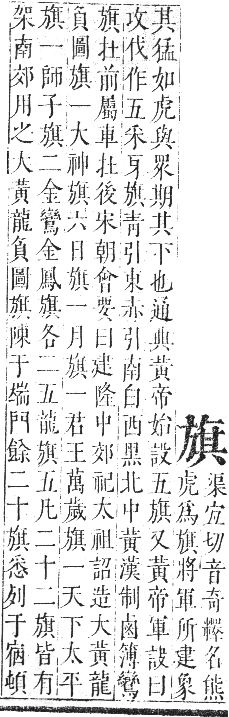 旗
渠宜切音奇釋名熊
虎爲旗將軍所建象
其猛如虎與眾期其下也通典黃帝始設五旗又黃帝軍訣曰
攻伐作五采牙旗靑引東赤引南白西黑北中黃漢制鹵簿鸞
旗在前屬車在後宋朝會要曰建隆中郊祀太祖詔造大黃龍
負圖旗一大神旗六日旗一月旗一君王萬歲旗一天下太平
旗一師子旗二金鸞金鳳旗各二五龍旗五凡二十二旗皆有
架南郊用之大黃龍負圖旗陳于端門餘二十旗悉列于宿頓